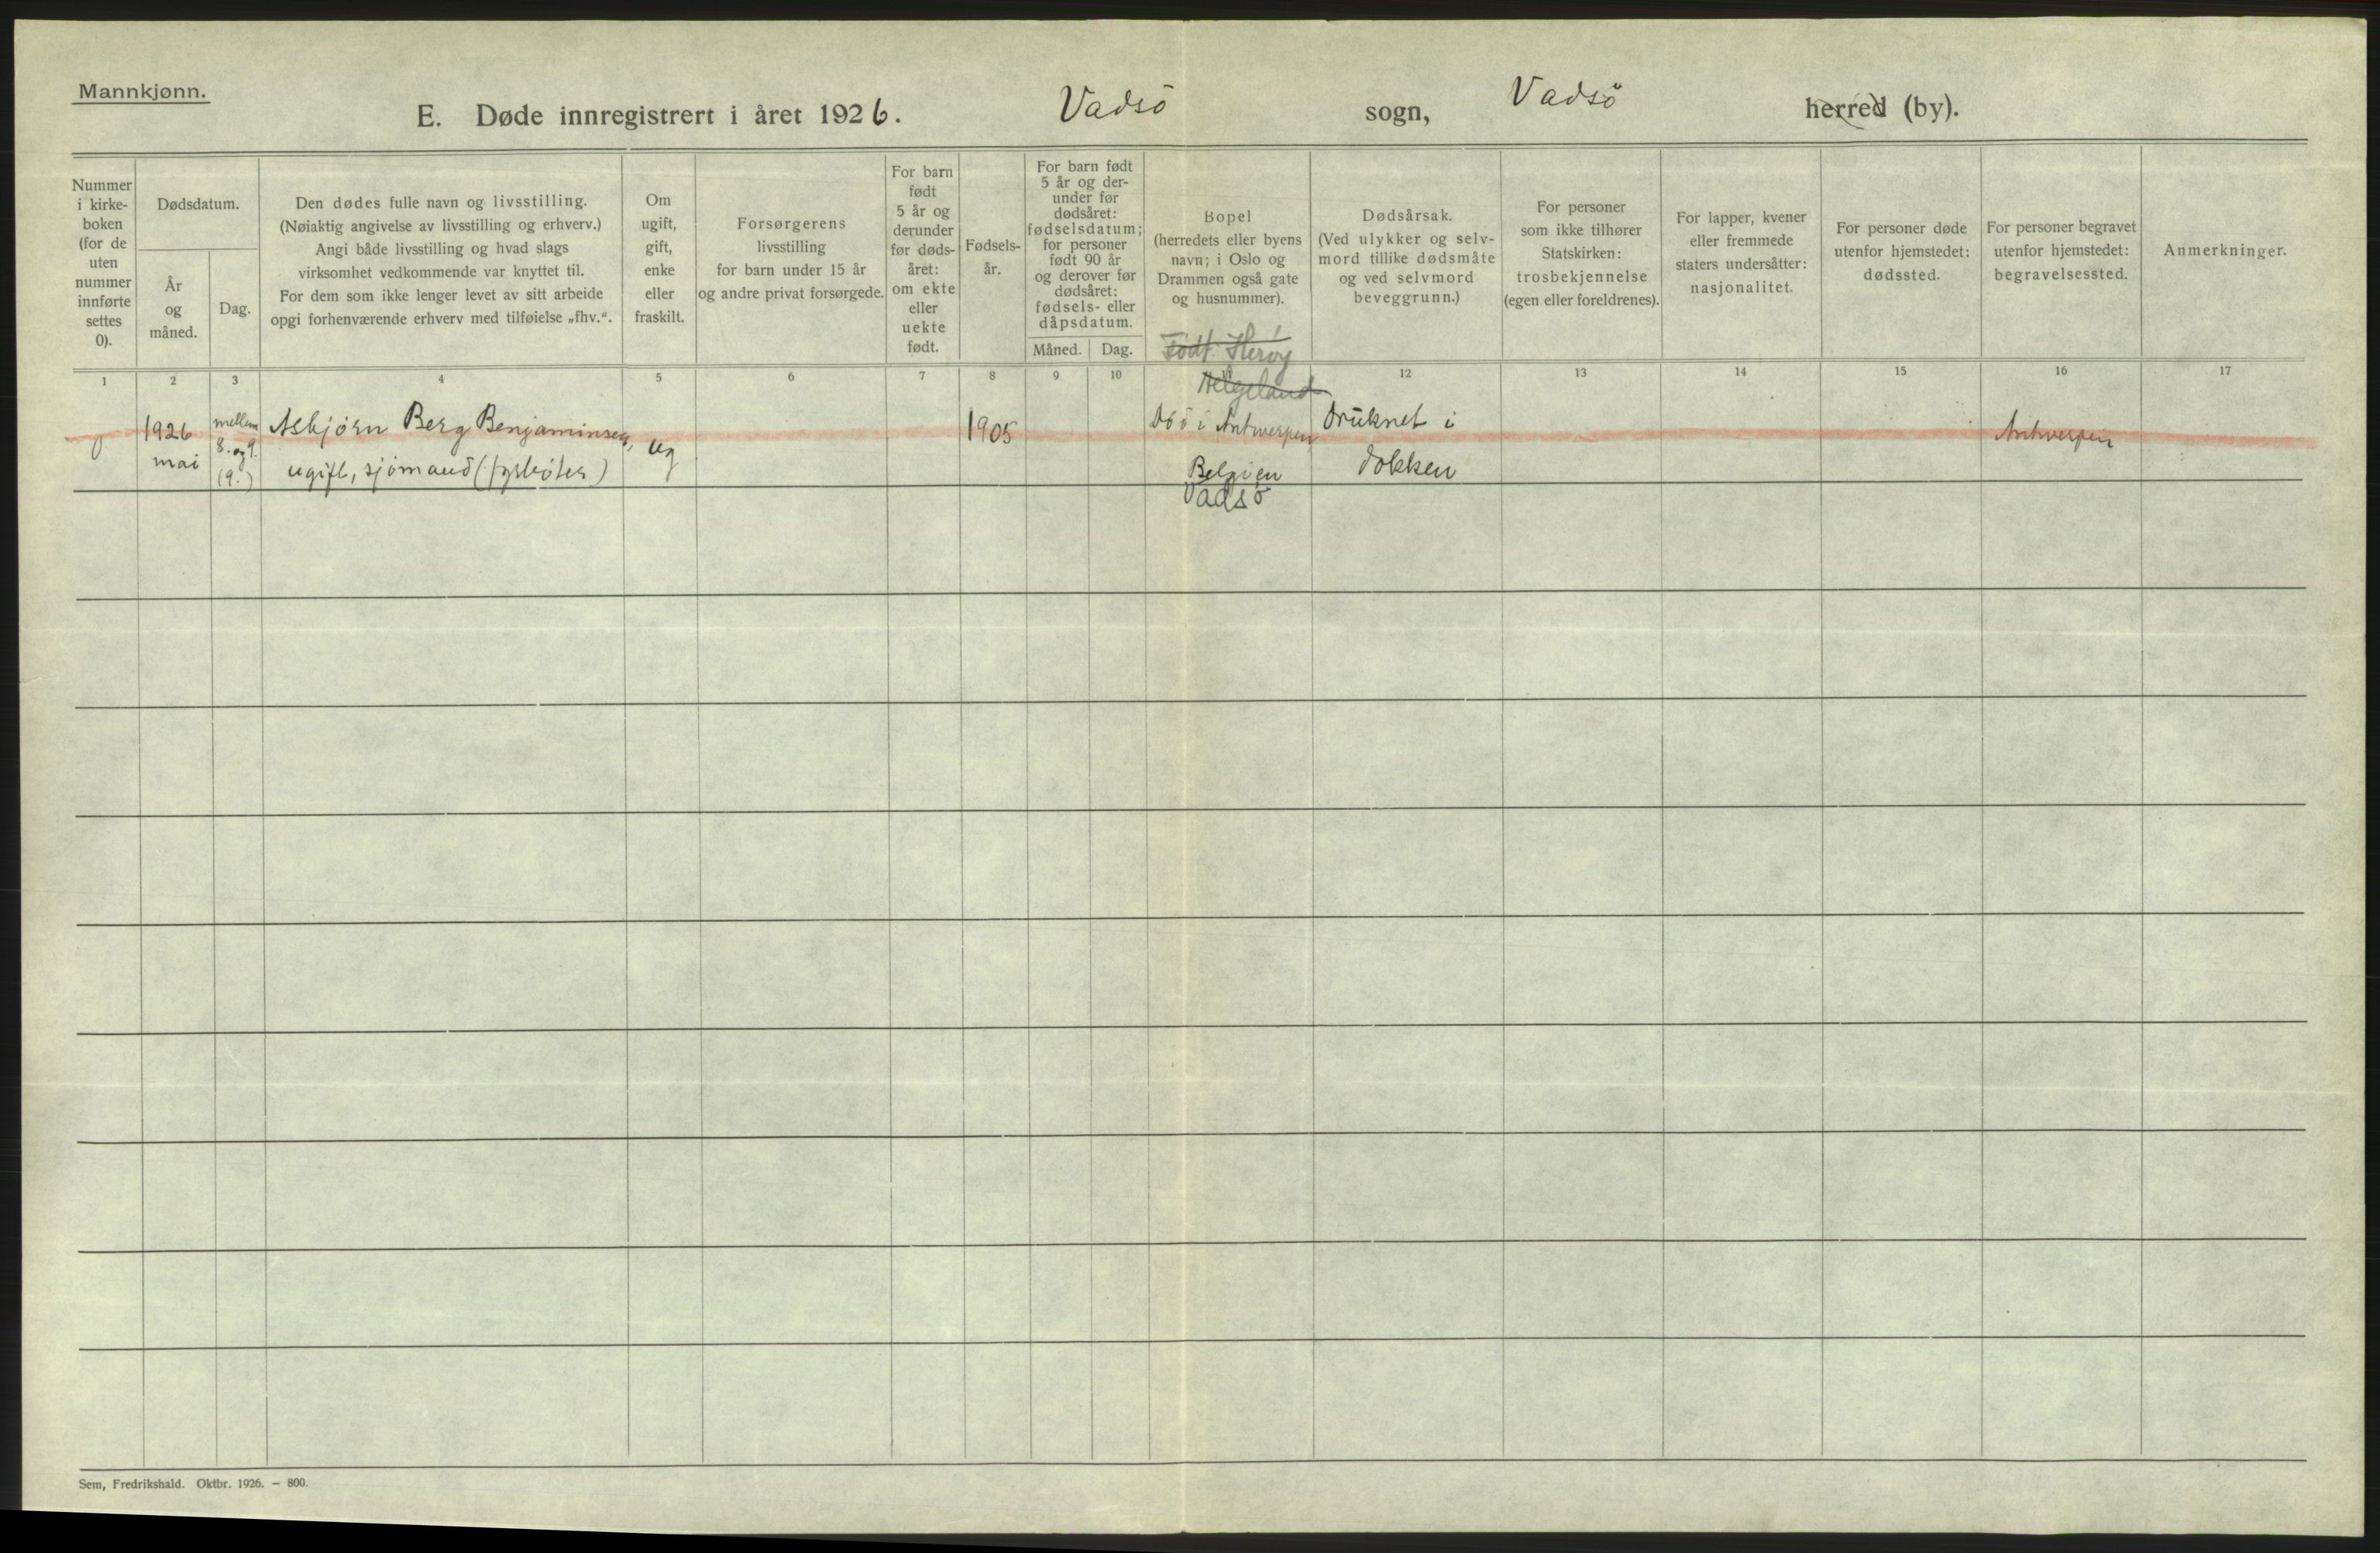 Mannkjønn.
E. Døde innregistrert i året 1926. Vadsö sogn, Vadsö herred (by).
Nummer
i kirke-
boken
(for de
uten
nummer
innførte
settes
0).
Dødsdatum.
År
og
måned.
Dag.
Den dødes fulle navn og livsstilling.
(Nøiaktig angivelse av livsstilling og erhverv.)
Angi både livsstilling og hvad slags
virksomhet vedkommende var knyttet til.
For dem som ikke lenger levet av sitt arbeide
opgi forhenværende erhverv med tilføielse „fhv.“.
Om
ugift,
gift,
enke
eller
fraskilt.
Forsørgerens
livsstilling
for barn under 15 år
og andre privat forsørgede.
For barn
født
5 år og
derunder
før døds-
året:
om ekte
eller
uekte
født.
Fødsels-
år.
For barn født
5 år og der-
under før
dødsåret:
fødselsdatum;
for personer
født 90 år
og derover før
dødsåret:
fødsels- eller
dåpsdatum.
Måned. Dag.
Bopel
(herredets eller byens
navn; i Oslo og
Drammen også gate
og husnummer).
Dødsårsak.
(Ved ulykker og selv-
mord tillike dødsmåte
og ved selvmord
beveggrunn.)
For personer
som ikke tilhører
Statskirken:
trosbekjennelse
(egen eller foreldrenes).
For lapper, kvener
eller fremmede
staters undersåtter:
nasjonalitet.
For personer døde
utenfor hjemstedet:
dødssted.
For personer begravet
utenfor hjemstedet:
begravelsessted.
Anmerkninger.
1 2 3 4 5 6 7 8 9 10 12 13 14 15 16 17
Født: Herøy
Helgeland
0
1926
mai
mellem
8. og 9.
(9.)
Asbjørn Berg Benjaminsen,
ugift, sjömand (fyrbøter)
ug
1905
Död i Antwerpen,
Belgien
Vadsö
Druknet i
dokken
Antwerpen
Sem, Fredrikshald. Oktbr. 1926. — 800.